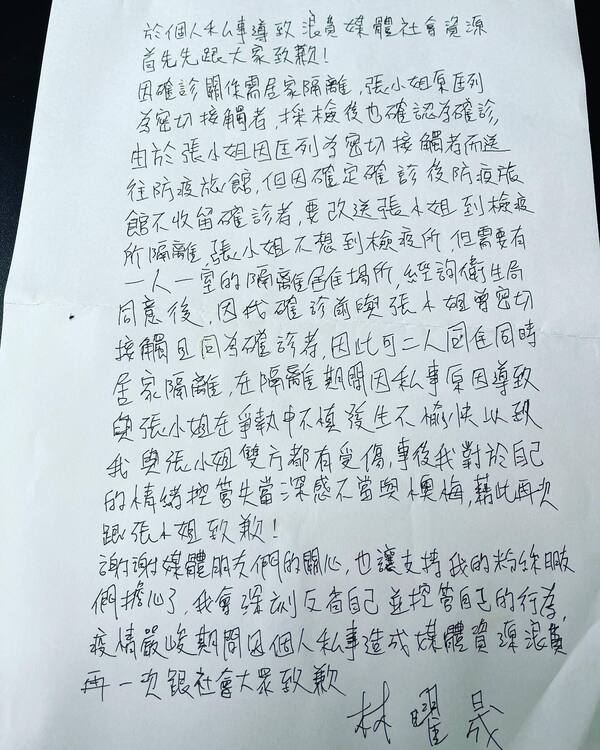 於個人私事導致浪費媒體社會資源
首先先跟大家致歉!
因確診關係需居家隔離,張小姐原匡列
為密切接觸者,採檢後也確認為確診,
由於張小姐因匡列為密切接觸者而送
往防疫旅館,但因確定確診後防疫旅
館不收留確診者,要改送張小姐到檢疫
所隔離,張小姐不想到檢疫所,但需要有
一人一室的隔離居住場所,經詢衛生局
同意後,因我確診前與張小姐曾密切
接觸且同為確診者,因此可二人同住同時
居家隔離,在隔離期間因私事原因導致
與張小姐在爭執中不慎發生不愉快以致
我與張小姐雙方都有受傷,事後我對於自己
的情緒控管失當深感不當與懊悔,藉此再次
跟張小姐致歉!
謝謝媒體朋友們的關心,也讓支持我的粉絲朋友
們擔心了,我會深刻反省自己並控管自己的行為,
疫情嚴峻期間因個人私事造成媒體資源浪費
再一次跟社會大眾致歉
林曜晟